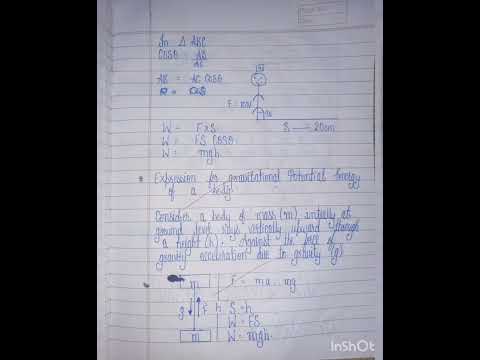 In Δ ABC
COSθ = AB/AC
AB = AC COSθ
F = 10N
W = F×S
S → 20cm
W = FS COSθ
W = mgh
* Expression for gravitational Potential Energy
of a body.
Consider a body of mass (m) initially at
ground level rays vertically upward through
a height (h). Against the force of
gravity acceleration due to gravity (g)
m
F = ma = mg
g F h S = h
W = FS
m W = mgh.
InShOt